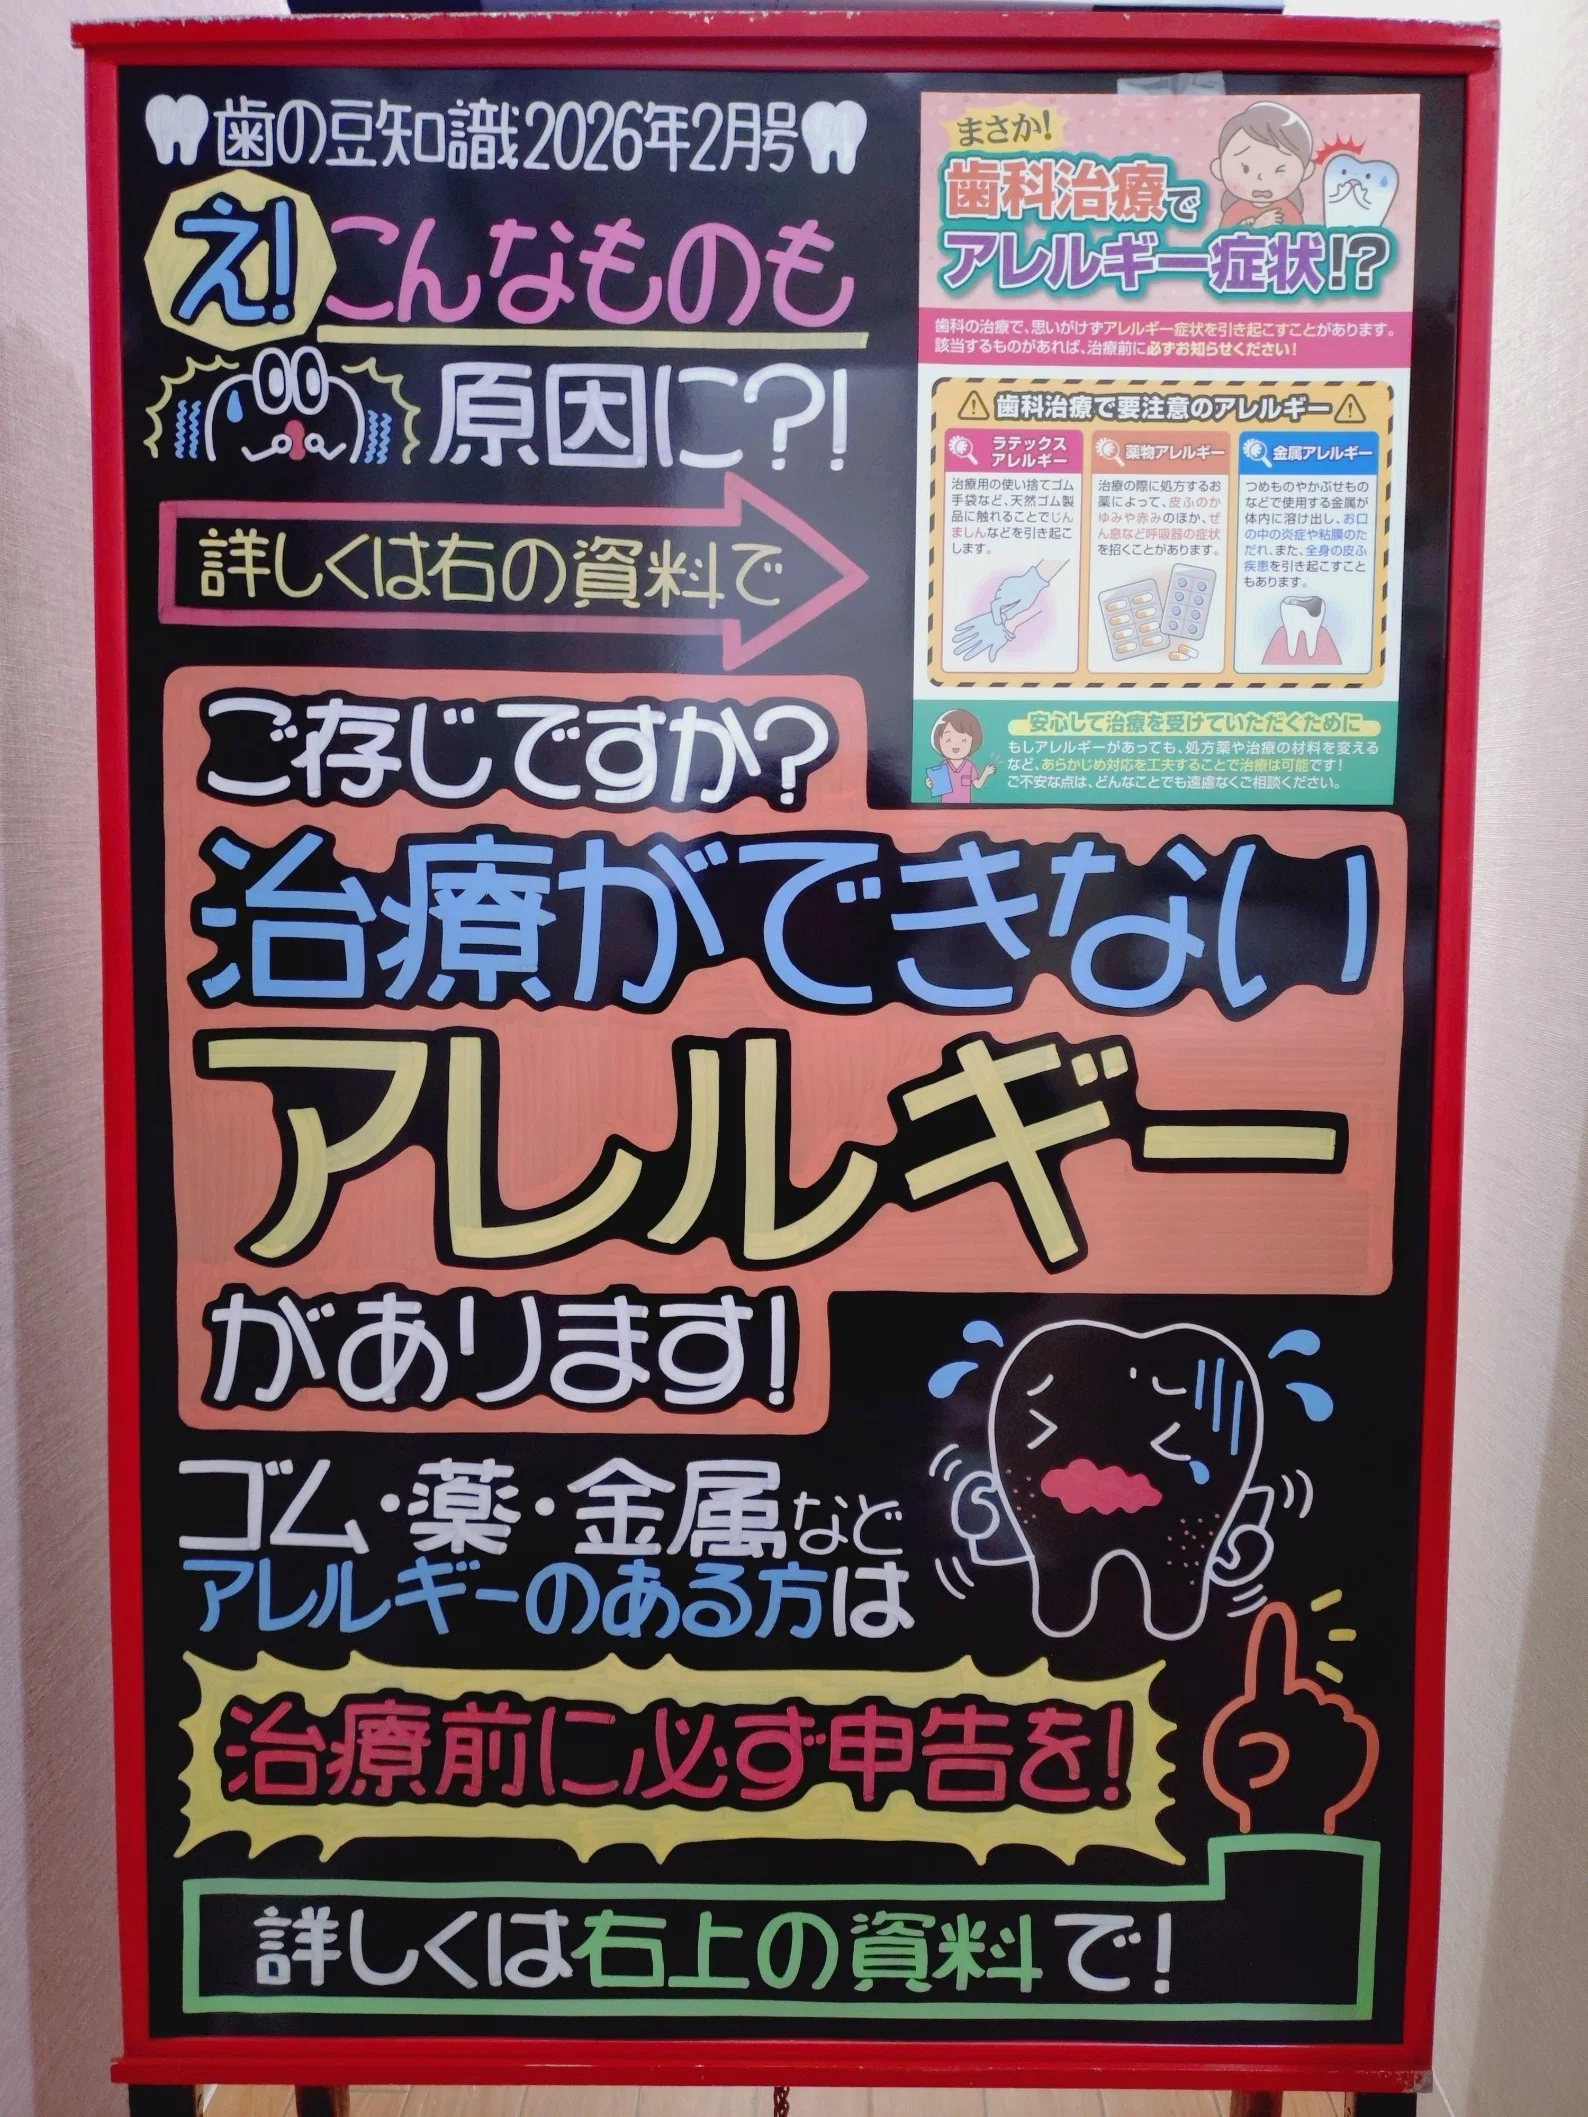 歯の豆知識2026年2月号
え!こんなものも
原因に?!
詳しくは右の資料で
まさか!
歯科治療で
アレルギー症状!?
歯科の治療で、思いがけずアレルギー症状を引き起こすことがあります。
該当するものがあれば、治療前に必ずお知らせください!
歯科治療で要注意のアレルギー
ラテックス
アレルギー
治療用の使い捨てゴム
手袋など、天然ゴム製
品に触れることでじん
ましんなどを引き起こ
します。
薬物アレルギー
治療の際に処方するお
薬によって、皮ふのか
ゆみや赤みのほか、ぜ
ん息など呼吸器の症状
を招くことがあります。
金属アレルギー
つめものやかぶせもの
などで使用する金属が
体内に溶け出し、お口
の中の炎症や粘膜のた
だれ、また、全身の皮ふ
疾患を引き起こすこと
もあります。
安心して治療を受けていただくために
もしアレルギーがあっても、処方薬や治療の材料を変える
など、あらかじめ対応を工夫することで治療は可能です!
ご不安な点は、どんなことでも遠慮なくご相談ください。
ご存じですか?
治療ができない
アレルギー
があります!
ゴム・薬・金属など
アレルギーのある方は
治療前に必ず申告を!
詳しくは右上の資料で!